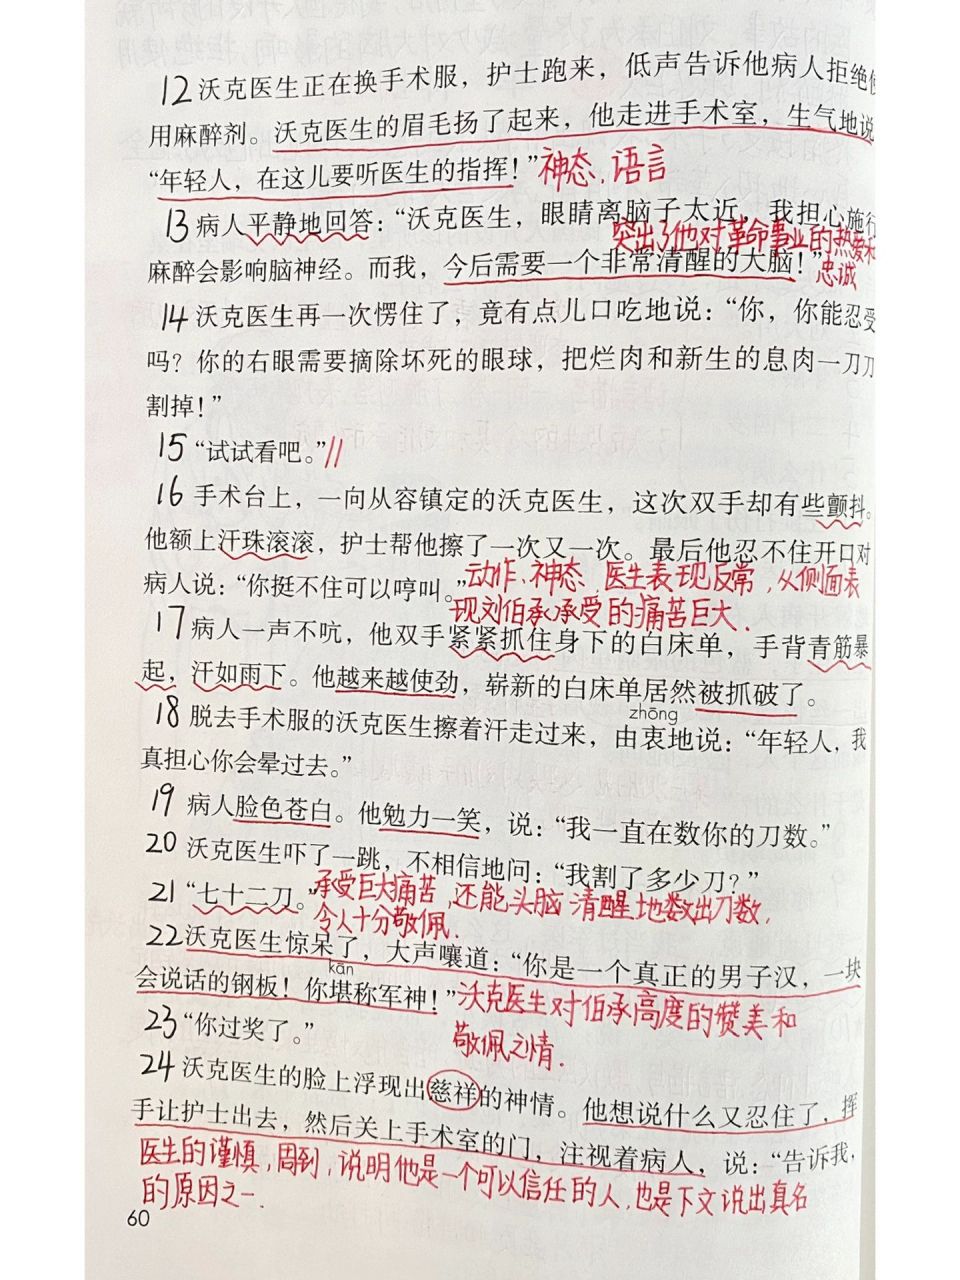 12 沃克医生正在换手术服，护士跑来，低声告诉他病人拒绝使
用麻醉剂。沃克医生的眉毛扬了起来，他走进手术室，生气地说
“年轻人，在这儿要听医生的指挥！”神态、语言
13 病人平静地回答：“沃克医生，眼睛离脑子太近，我担心施行
突出了他对革命事业的热爱和
忠诚
麻醉会影响脑神经。而我，今后需要一个非常清醒的大脑！”
14 沃克医生再一次愣住了，竟有点儿口吃地说：“你，你能忍受
吗？你的右眼需要摘除坏死的眼球，把烂肉和新生的息肉一刀刀
割掉！”
15 “试试看吧。”//
16 手术台上，一向从容镇定的沃克医生，这次双手却有些颤抖。
他额上汗珠滚滚，护士帮他擦了一次又一次。最后他忍不住开口对
病人说：“你挺不住可以哼叫。”
动作、神态，医生表现反常，从侧面表
现刘伯承承受的痛苦巨大.
17 病人一声不吭，他双手紧紧抓住身下的白床单，手背青筋暴
起，汗如雨下。他越来越使劲，崭新的白床单居然被抓破了。
zhōng
18 脱去手术服的沃克医生擦着汗走过来，由衷地说：“年轻人，我
真担心你会晕过去。”
19 病人脸色苍白。他勉力一笑，说：“我一直在数你的刀数。”
20 沃克医生吓了一跳，不相信地问：“我割了多少刀？”
21 “七十二刀。”承受巨大痛苦，还能头脑清醒地数出刀数，
令人十分敬佩.
22 沃克医生惊呆了，大声嚷道：“你是一个真正的男子汉，一块
kān
会说话的钢板！你堪称军神！”沃克医生对伯承高度的赞美和
敬佩之情.
23 “你过奖了。”
24 沃克医生的脸上浮现出慈祥的神情。他想说什么又忍住了，挥
手让护士出去，然后关上手术室的门，注视着病人，说：“告诉我，
医生的谨慎，周到，说明他是一个可以信任的人，也是下文说出真名
的原因之一.
60